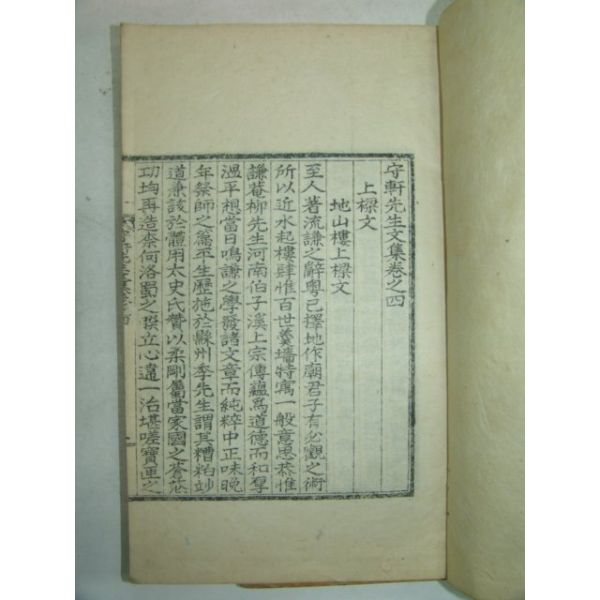 守軒先生文集卷之四
上樑文
地山樓上樑文
至人著流謙之辭粤已擇地作廟君子有必觀之術
所以近水起樓肆惟百世羹墻特寓一般意思恭惟
謙菴柳先生河南伯子溪上宗傳蘊爲道德而和厚
溫平想當日鳴謙之學發諸文章而純粹中正味晩
年祭師之篇平生歷施於縣州李先生謂其糟粕妙
道兼該於體用太史氏贊以柔剛屬當家國之蒼茫
功均再造奈何洛蜀之 立心違一治堪嗟寶匣之